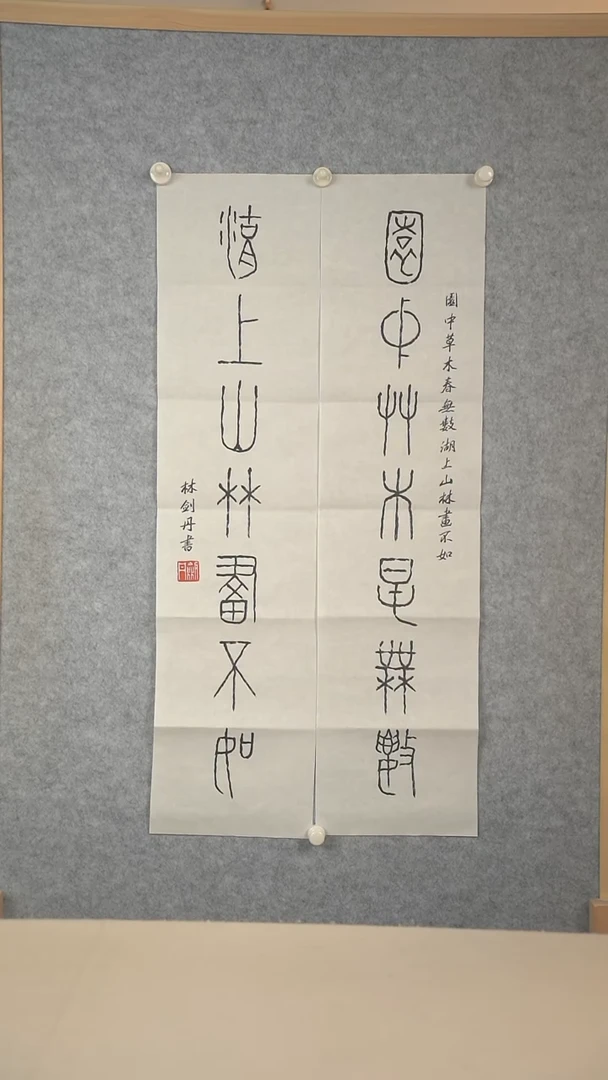 園中草木春無數湖上山林畫不如
園中艸木春無數
湖上山林畫不如
林剑丹書